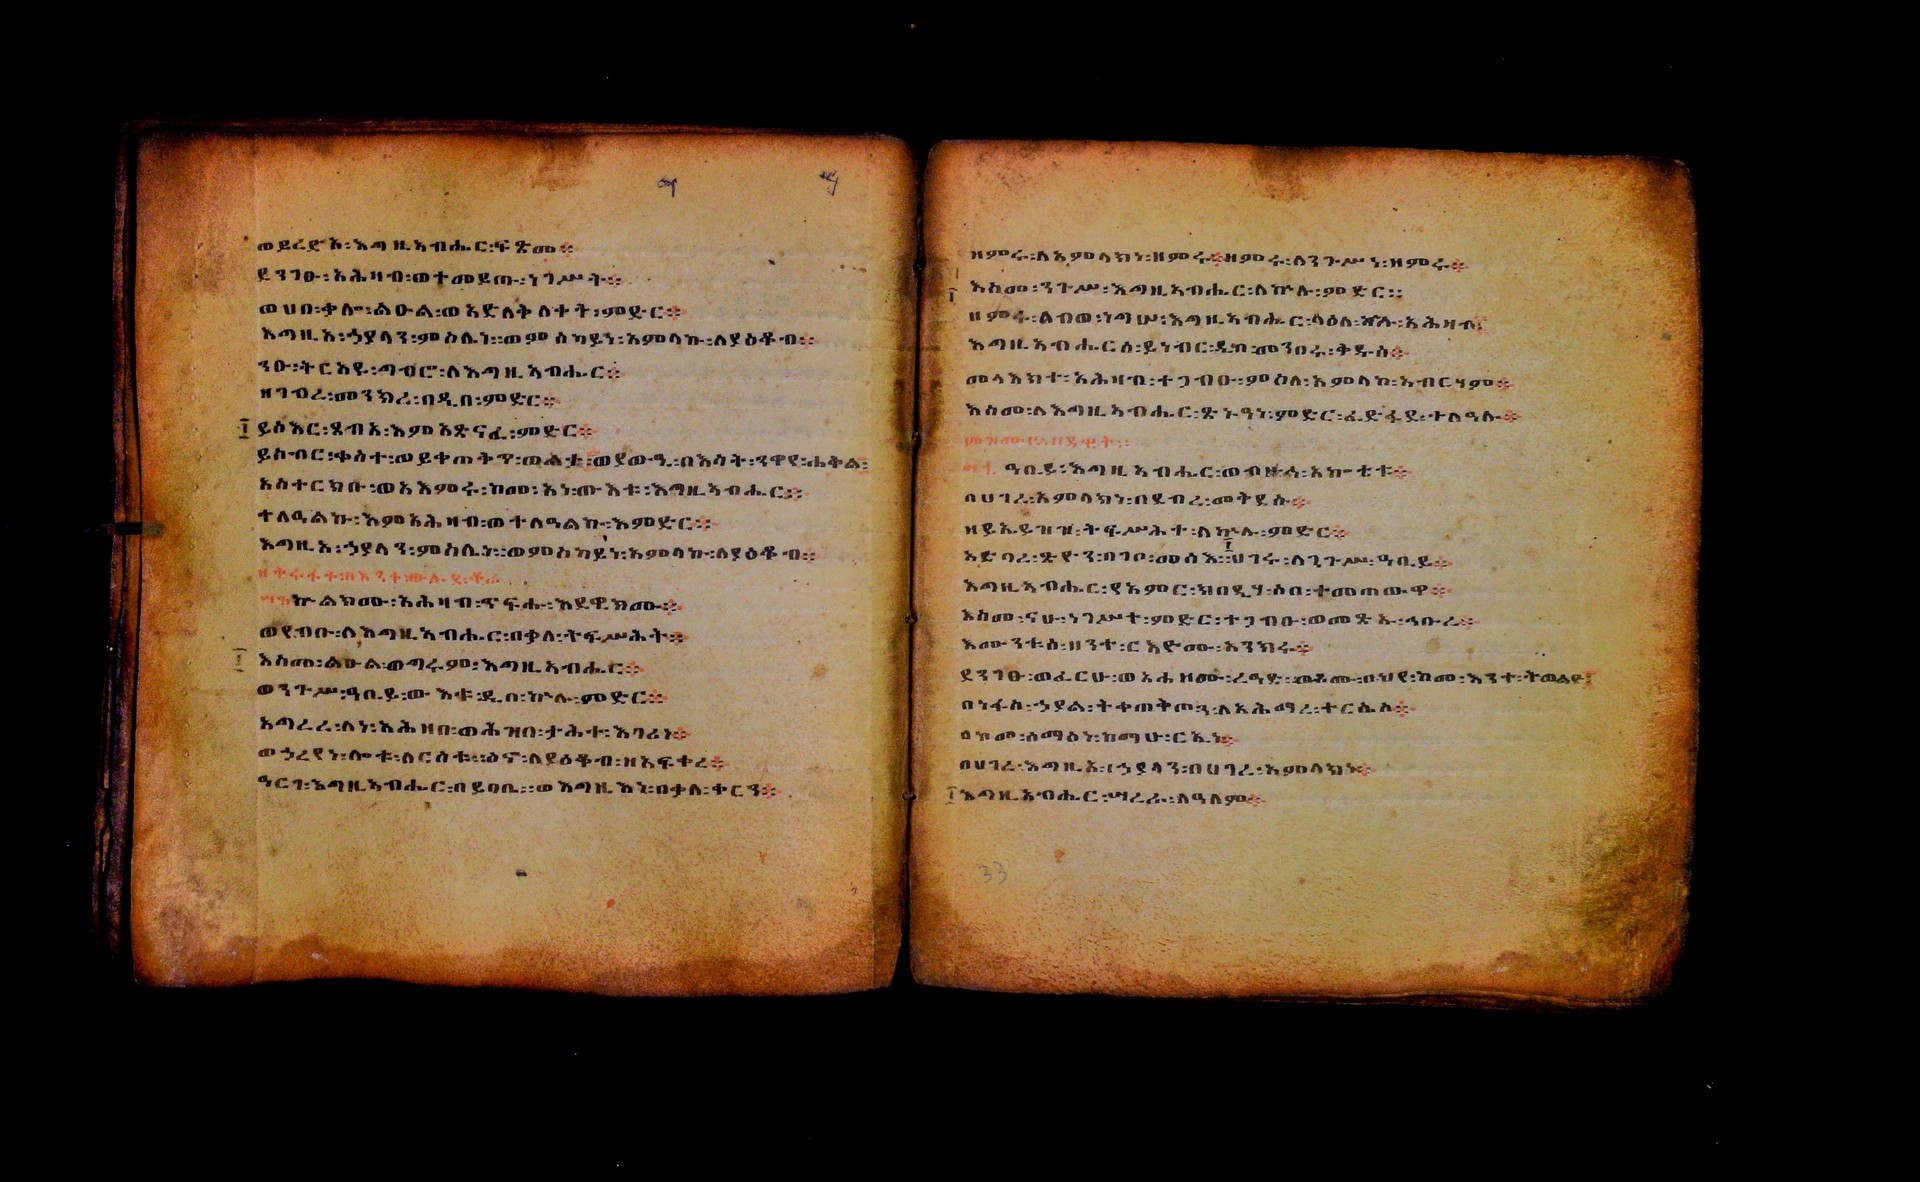 ወይረድአ፡እግዚአብሔር፡ፍጽመ።
ደንገፁ፡አሕዛብ፡ወተመይጡ፡ነገሥት።
ወሀበ፡ቃሎ፡ልዑል፡ወአድለቅለቀት፡ምድር።
እግዚአ፡ኃያላን፡ምስሌነ፡ወምስካይነ፡አምላኩ፡ለያዕቆብ።
ንዑ፡ትርአዩ፡ግብሮ፡ለእግዚአብሔር።
ዘገብረ፡መንክረ፡በዲበ፡ምድር።
ይስእር፡ፀብአ፡እምአጽናፈ፡ምድር።
ይሰብር፡ቀስተ፡ወይቀጠቅጥ፡ወልታ፡ወያውዒ፡በእሳት፡ንዋየ፡ሐቅል፡
አስተርክቡ፡ወአእምሩ፡ከመ፡አነ፡ውእቱ፡እግዚአብሔር።
ተለዓልኩ፡እምአሕዛብ፡ወተለዓልኩ፡እምድር።
እግዚአ፡ኃያላን፡ምስሌነ፡ወምስካይነ፡አምላኩ፡ለያዕቆብ።
ኵልክሙ፡አሕዛብ፡ጥፍሑ፡እደዊክሙ።
ወየብቡ፡ለእግዚአብሔር፡በቃለ፡ትፍሥሕት።
እስመ፡ልዑል፡ወግሩም፡እግዚአብሔር።
ወንጉሥ፡ዓቢይ፡ውእቱ፡ዲበ፡ኵሉ፡ምድር።
አግረረ፡ለነ፡አሕዛበ፡ወሕዝበ፡ታሕተ፡እገሪነ።
ወኃረየነ፡ሎቱ፡ለርስቱ፡ስኖ፡ለያዕቆብ፡ዘአፍቀረ።
ዓርገ፡እግዚአብሔር፡በይባቤ፡ወእግዚእነ፡በቃለ፡ቀርን።
ዘምሩ፡ለአምላክነ፡ዘምሩ።ዘምሩ፡ለንጉሥነ፡ዘምሩ።
እስመ፡ንጉሥ፡እግዚአብሔር፡ለኵሉ፡ምድር።
ዘምሩ፡ልብወ፡ነግሠ፡እግዚአብሔር፡ላዕለ፡ኵሉ፡አሕዛብ፡
እግዚአብሔርሰ፡ይነብር፡ዲበ፡መንበሩ፡ቅዱስ።
መላእክተ፡አሕዛብ፡ተጋብኡ፡ምስለ፡አምላከ፡አብርሃም።
እስመ፡ለእግዚአብሔር፡ጽኑዓነ፡ምድር፡ፈድፋደ፡ተለዓሉ።
መዝሙር፡ዘዳዊት።
ዓቢይ፡እግዚአብሔር፡ወብዙኅ፡አኰቴቱ።
በሀገረ፡አምላክነ፡በደብረ፡መቅደሱ።
ዘይኤይዝዝ፡ትፍሥሕተ፡ለኵሉ፡ምድር።
አድባረ፡ጽዮን፡በገቦ፡መስእ፡ሀገሩ፡ለንጉሥ፡ዓቢይ።
እግዚአብሔር፡የአምር፡ክበዲሃ፡ሶበ፡ተመጠውዋ።
እስመ፡ናሁ፡ነገሥተ፡ምድር፡ተጋብኡ፡ወመጽኡ፡ኅቡረ።
እሙንቱሰ፡ዘንተ፡ርእዮሙ፡አንከሩ።
ደንገፁ፡ወፈርሁ፡ወአሐዞሙ፡ረዓድ፡ወሖሙ፡በህየ፡ከመ፡እንተ፡ትወልድ፡
በነፋስ፡ኃያል፡ትቀጠቅጦን፡ለአሕማረ፡ተርሴስ።
በከመ፡ሰማዕነ፡ከማሁ፡ርኢነ።
በሀገረ፡እግዚአ፡ኃያላን፡በሀገረ፡አምላክነ።
እግዚአብሔር፡ሣረራ፡ለዓለም።
33